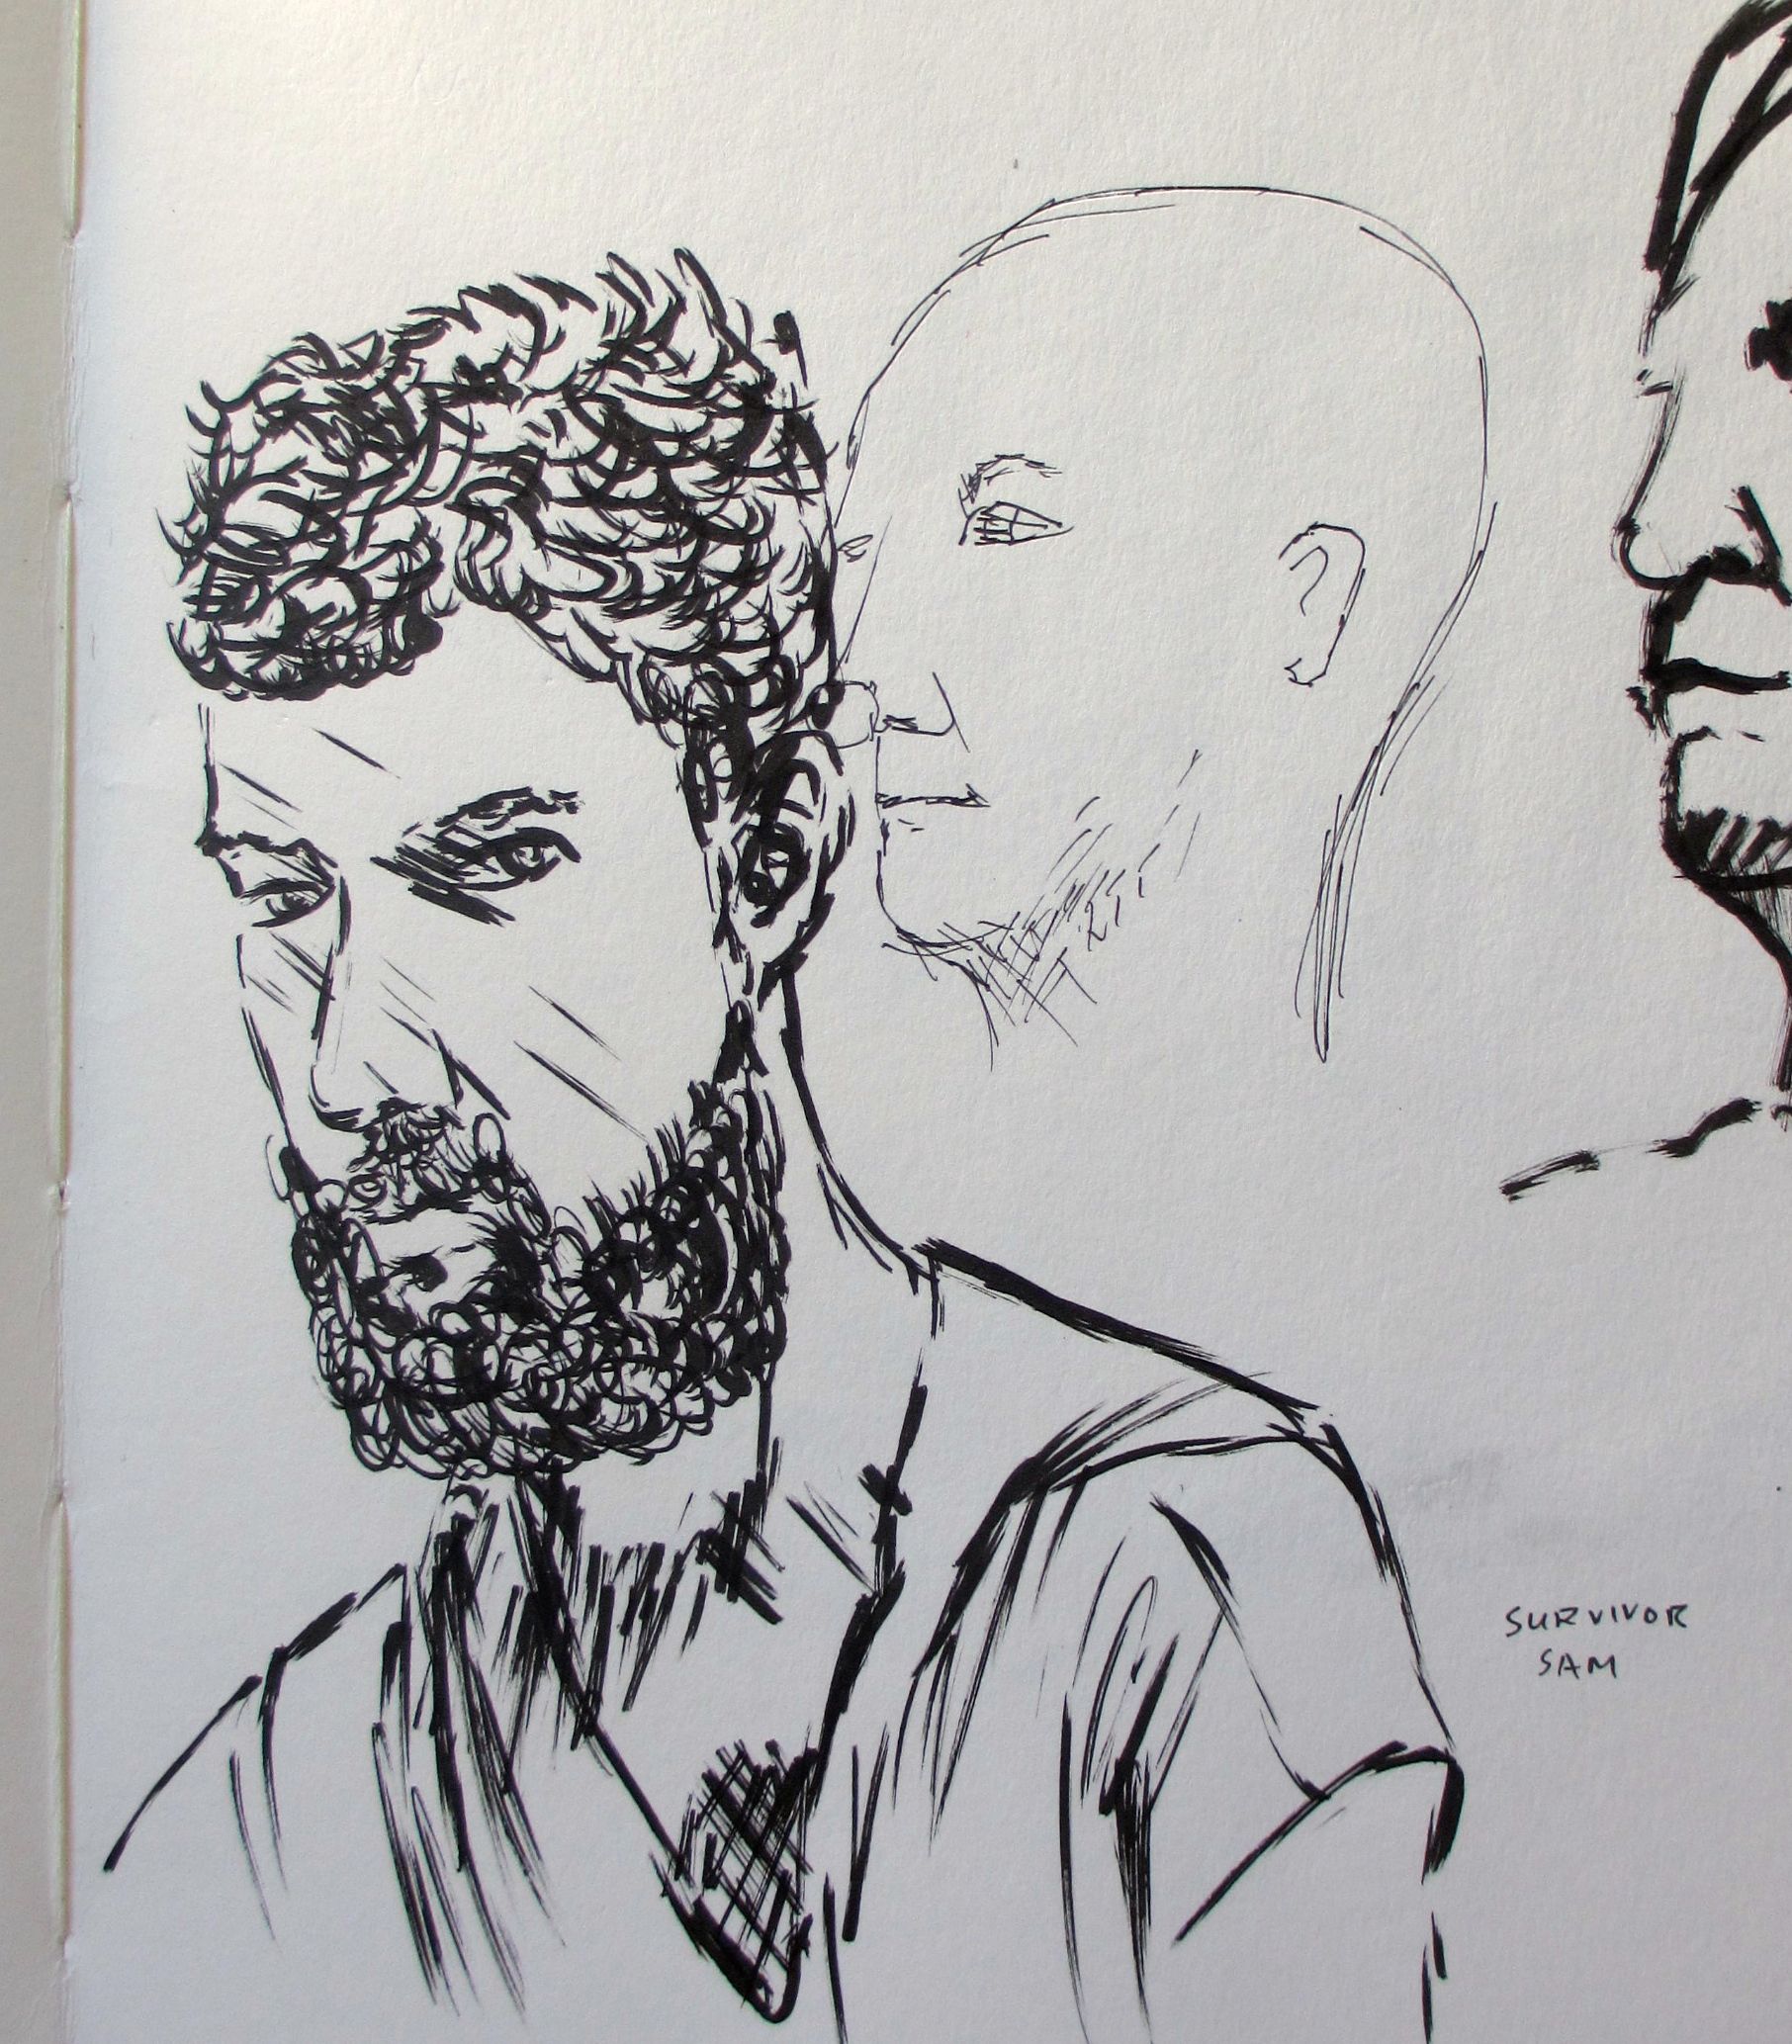 SURVIVOR
SAM